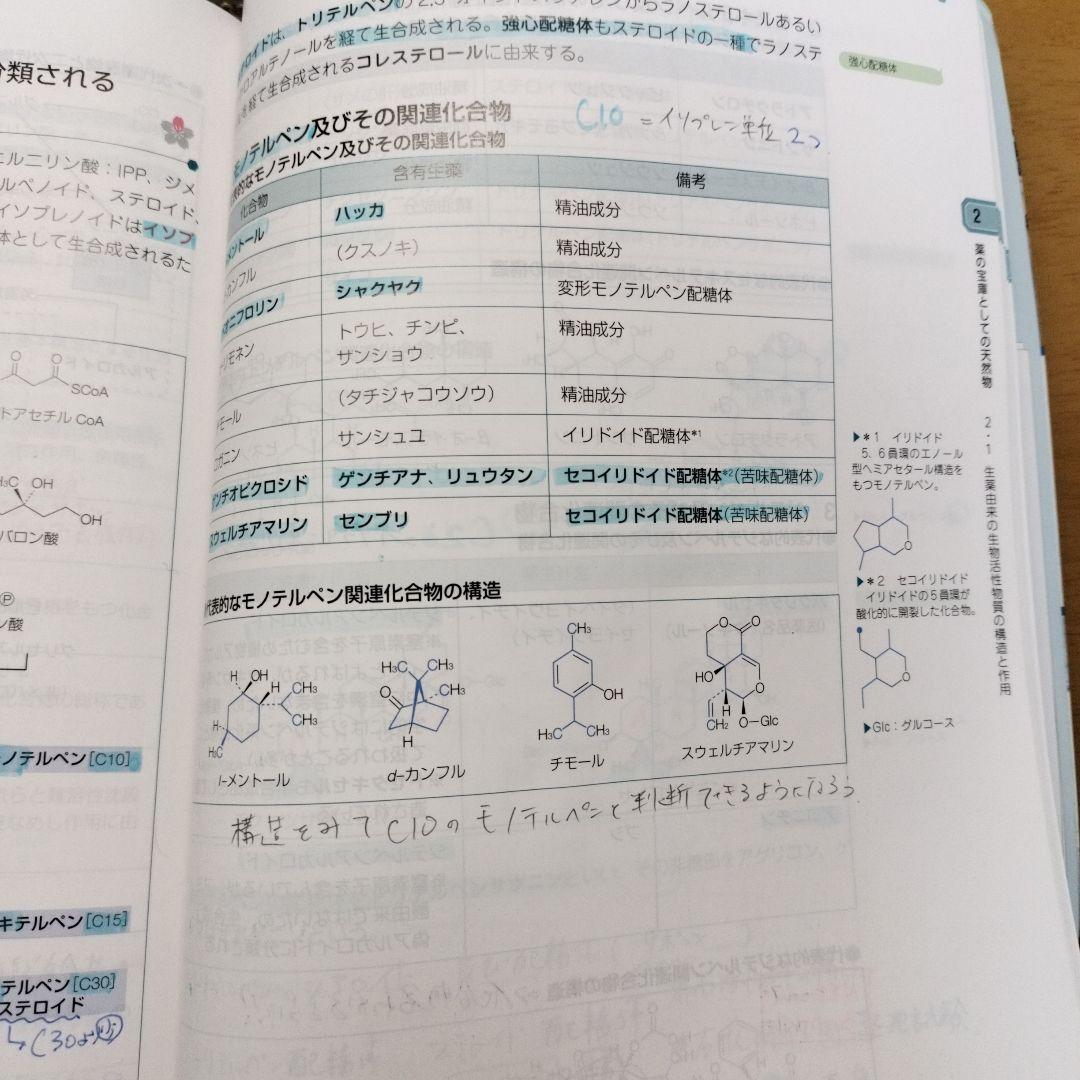 分類される
エルニリン酸：IPP、ジメ
ルペノイド、ステロイド、
イソプレノイドはイソプ
体として生合成されるた
SCoA
トアセチル CoA
H₃C OH
OH
バロン酸
Ⓟ
ン酸
ノテルペン[C10]
キテルペン[C15]
テルペン[C30]
ステロイド
ロイドは、トリテルペンの
からラノステロールあるい
ロアルテノールを経て生合成される。強心配糖体もステロイドの一種でラノステ
を経て生合成されるコレステロールに由来する。
強心配糖体
モノテルペン及びその関連化合物
C10 = イソプレン単位 2つ
表的なモノテルペン及びその関連化合物
化合物 含有生薬 備考
メントール ハッカ 精油成分
カンフル (クスノキ) 精油成分
オニフロリン シャクヤク 変形モノテルペン配糖体
リモネン トウヒ、チンピ、 精油成分
サンショウ
モール (タチジャコウソウ) 精油成分
ロガニン サンシュユ イリドイド配糖体*1
ンチオピクロシド ゲンチアナ、リュウタン セコイリドイド配糖体*2(苦味配糖体)
スウェルチアマリン センブリ セコイリドイド配糖体(苦味配糖体)
代表的なモノテルペン関連化合物の構造
H OH
H CH₃
CH₃
H
H₃C
l-メントール
H₃C CH₃
O CH₃
H
d-カンフル
CH₃
OH
H₃C CH₃
チモール
O O
HO
O
H
CH₂ O-Glc
スウェルチアマリン
構造をみてC10のモノテルペンと判断できるようになろう
2
薬の宝庫としての天然物
2・1 生薬由来の生物活性物質の構造と作用
▶*1 イリドイド
5、6員環のエノール
型ヘミアセタール構造を
もつモノテルペン。
O
▶*2 セコイリドイド
イリドイドの5員環が
酸化的に開裂した化合物。
O
▶Glc：グルコース